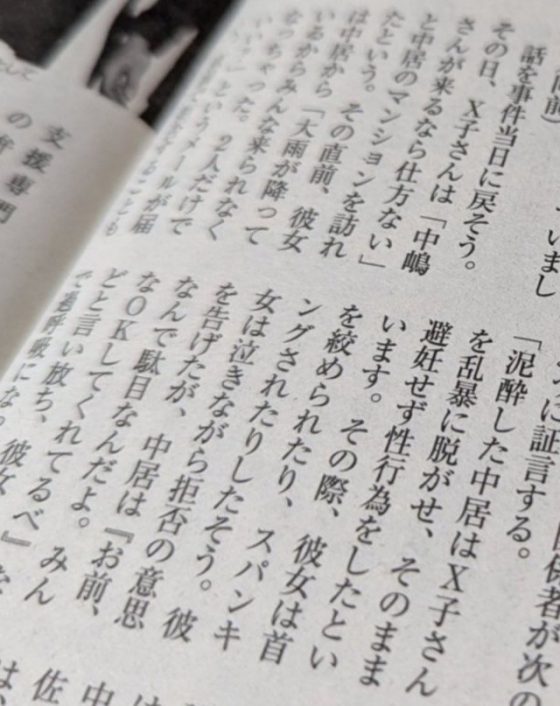 いまし
話を事件当日に戻そう。
その日、X子さんは「中嶋
さんが来るなら仕方ない」
と中居のマンションを訪れ
たという。その直前、彼女
は中居から「大雨が降って
いるからみんな来られなく
なっちゃった。2人だけで
というメールが届
係者が次の
に証言する。
「泥酔した中居はX子さん
を乱暴に脱がせ、そのまま
避妊せず性行為をしたとい
います。その際、彼女は首
を絞められたり、スパンキ
ングされたりしたそう。彼
女は泣きながら拒否の意思
を告げたが、中居は『お前、
なんで駄目なんだよ。みん
なOKしてくれてるべ』な
どと言い放ち、彼女
で
は
中
佐
は、
支援専門
の